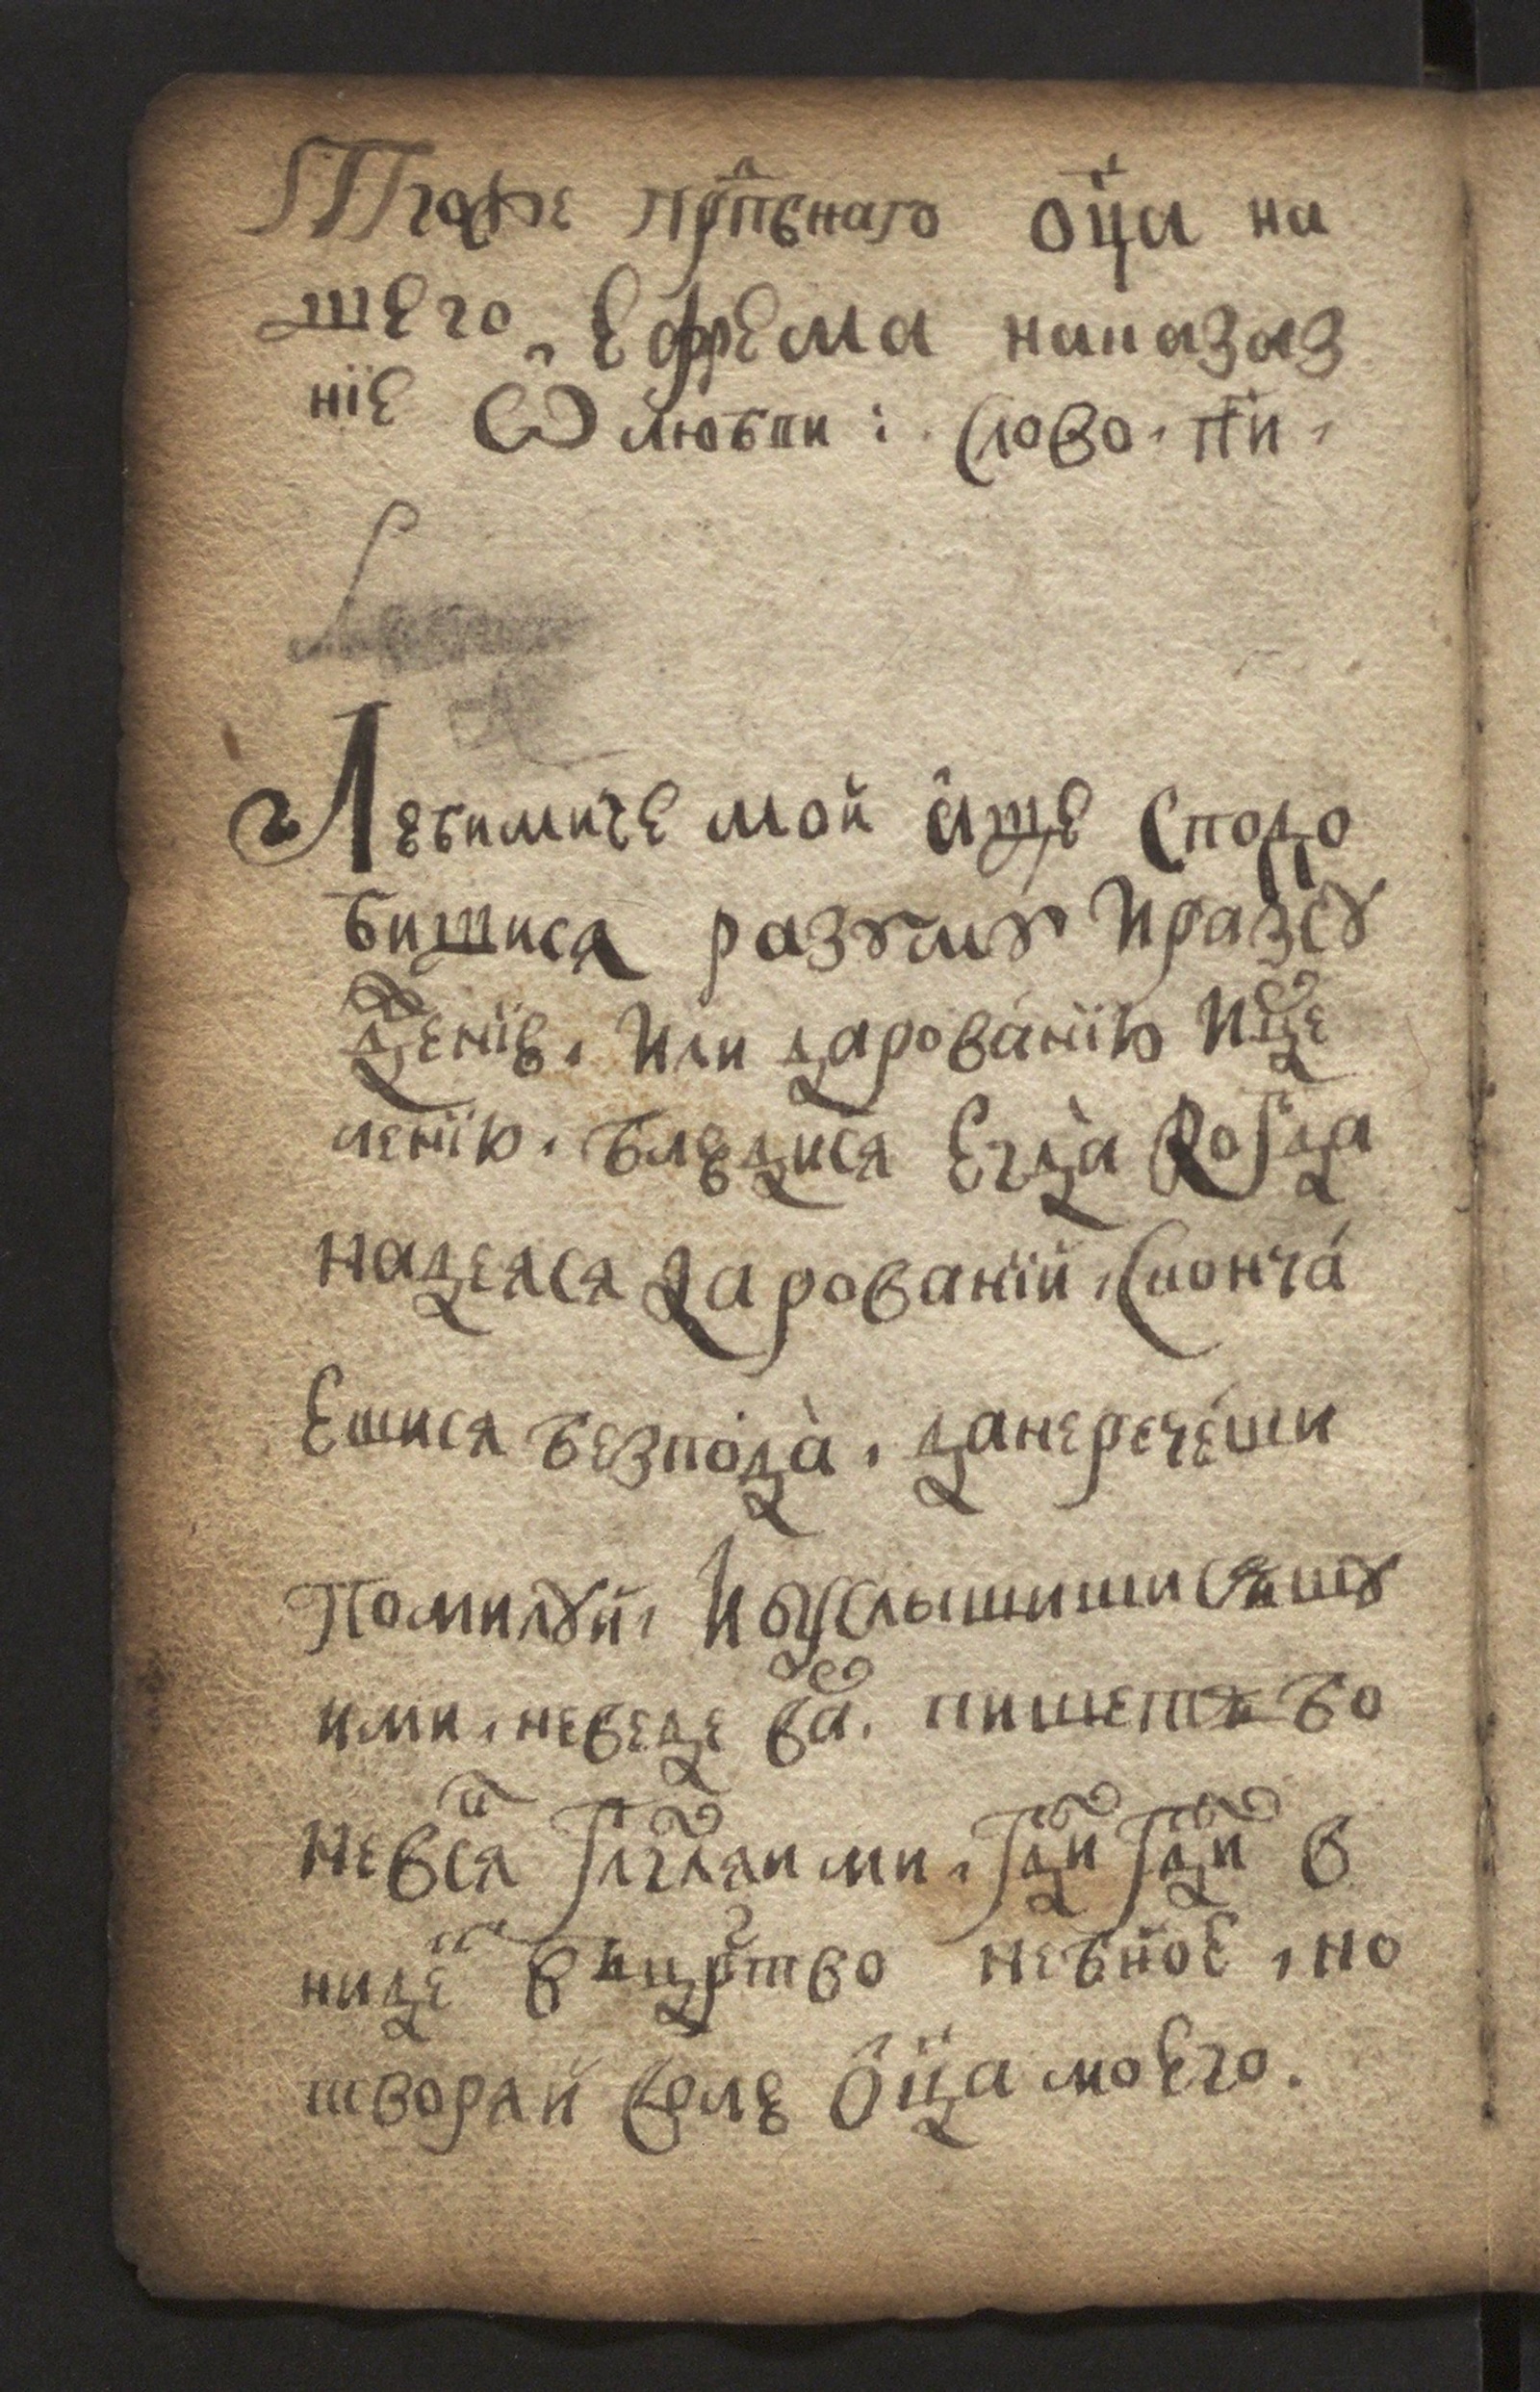 Тогоже прпⷣбнаго оц҃а на
шего, Ефрема наказаз
нїе Ѿ любви : Слово. п҃и.
Лебимиче мой аще сподо
бишися разꙋмꙋ И разсꙋ
жденїе, Или дарова́нїю Ице
ленїю. блюдися Егда̀ Когда
надеяся Дарованїй, Сконча́
Ешися безпо́да̀, данерече́ши
Помилꙋй, И оуслышиши
ими, неведе ва́. пишет бо
невся́ гл҃г҃ляи ми, гд҃и гд҃и в
ниде҃ в црⷭтво небн҃ое, но
творяй волю Оц҃а моего.